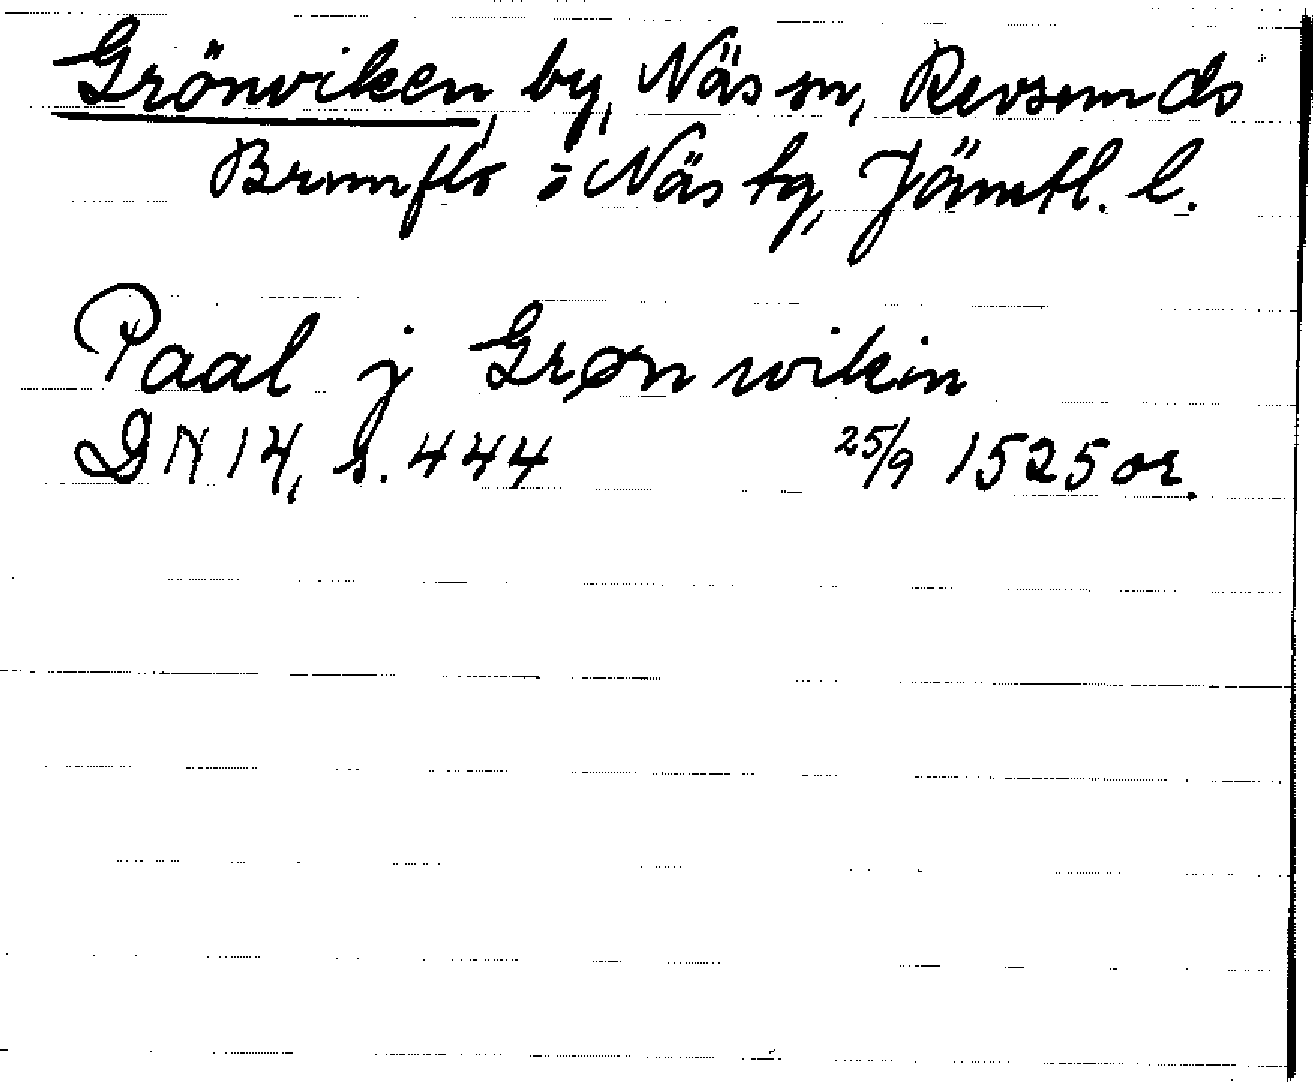 Grönviken by, Näs sn, Revsunds
Brunflo o Näs tg, Jämtl. l.
Paal j Grønwikin
DN 14, s. 444 25/9 1525 or.